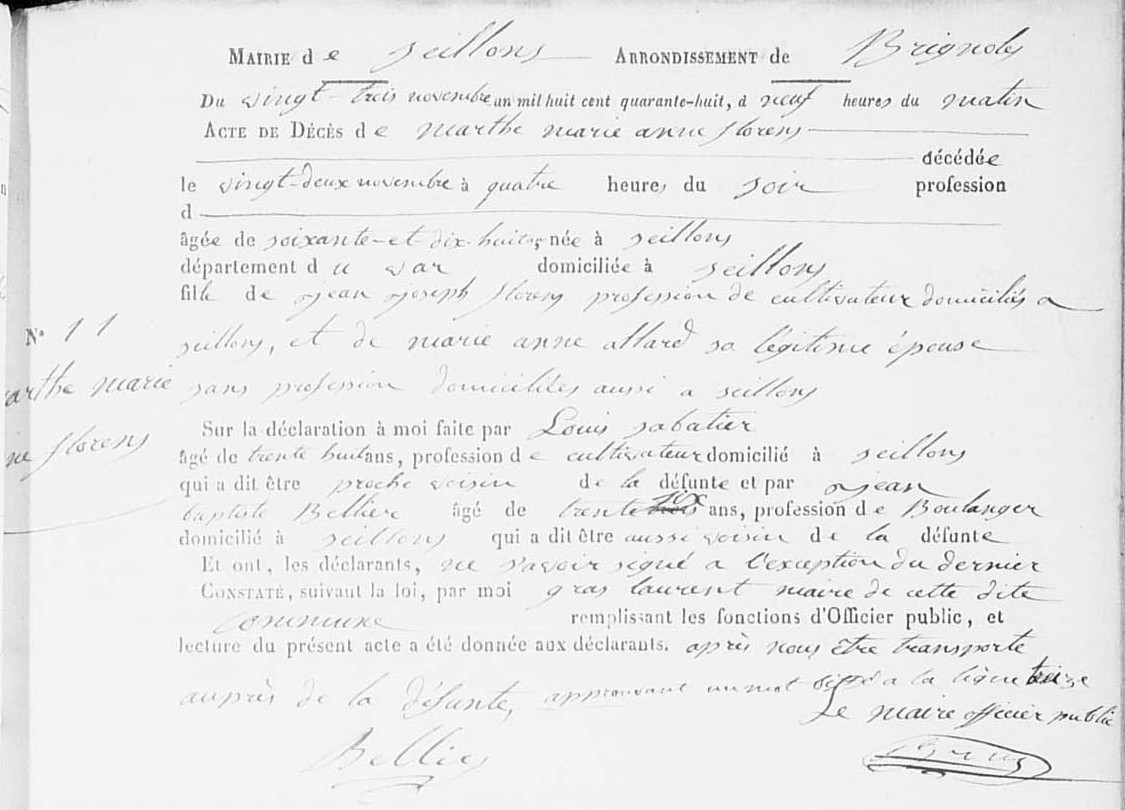 MAIRIE de Seillons ARRONDISSEMENT de Brignoles
Du vingt-trois novembre an mil huit cent quarante-huit, à neuf heures du matin
ACTE DE DÉCÈS de marthe marie anne florens
décédée
le vingt-deux novembre à quatre heures du soir profession
d
âgée de soixante-et-dix-huit ans, née à seillons
département du var domiciliée à seillons
fille de jean joseph florens profession de cultivateur domiciliés a
N° 11
seillons, et de marie anne allard sa légitime épouse
arthe marie
sans profession domiciliés aussi a seillons
ne florens
Sur la déclaration à moi faite par Louis sabatier
âgé de trente huit ans, profession de cultivateur domicilié à seillons
qui a dit être proche voisin de la défunte et par jean
baptiste Bellier âgé de trente six ans, profession de Boulanger
domicilié à seillons qui a dit être aussi voisin de la défunte
Et ont, les déclarants, ne savoir signé a l'exception du dernier
CONSTATÉ, suivant la loi, par moi gras laurent maire de cette dite
commune remplissant les fonctions d'Officier public, et
lecture du présent acte a été donnée aux déclarants. après nous être transporté
auprès de la défunte, approuvant un mot biffé a la ligne treize
Le maire officier public
Bellier
Gras